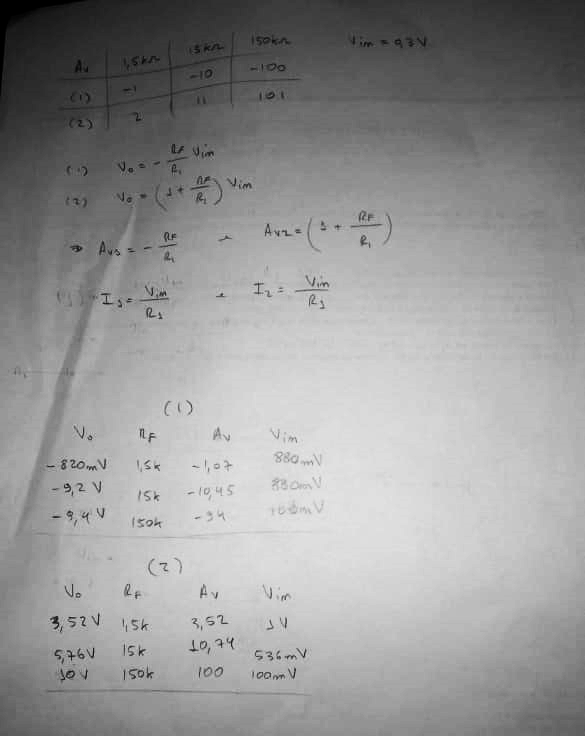 Av 1,5kΩ 15kΩ 150kΩ Vin = 0,3V
(1) -1 -10 -100
(2) 2 11 101
(1) Vo = - RF/R1 Vin
(2) Vo = (1 + RF/R1) Vin
⇒ Av1 = - RF/R1 e Av2 = (1 + RF/R1)
I1 = Vin/R1 e I2 = Vin/R1
(1)
Vo RF Av Vin
-820mV 1,5k -1,07 880mV
-9,2 V 15k -10,45 880mV
-9,4 V 150k -94
(2)
Vo RF Av Vin
3,52V 1,5k 3,52 1V
5,76V 15k 10,74 536mV
10V 150k 100 100mV